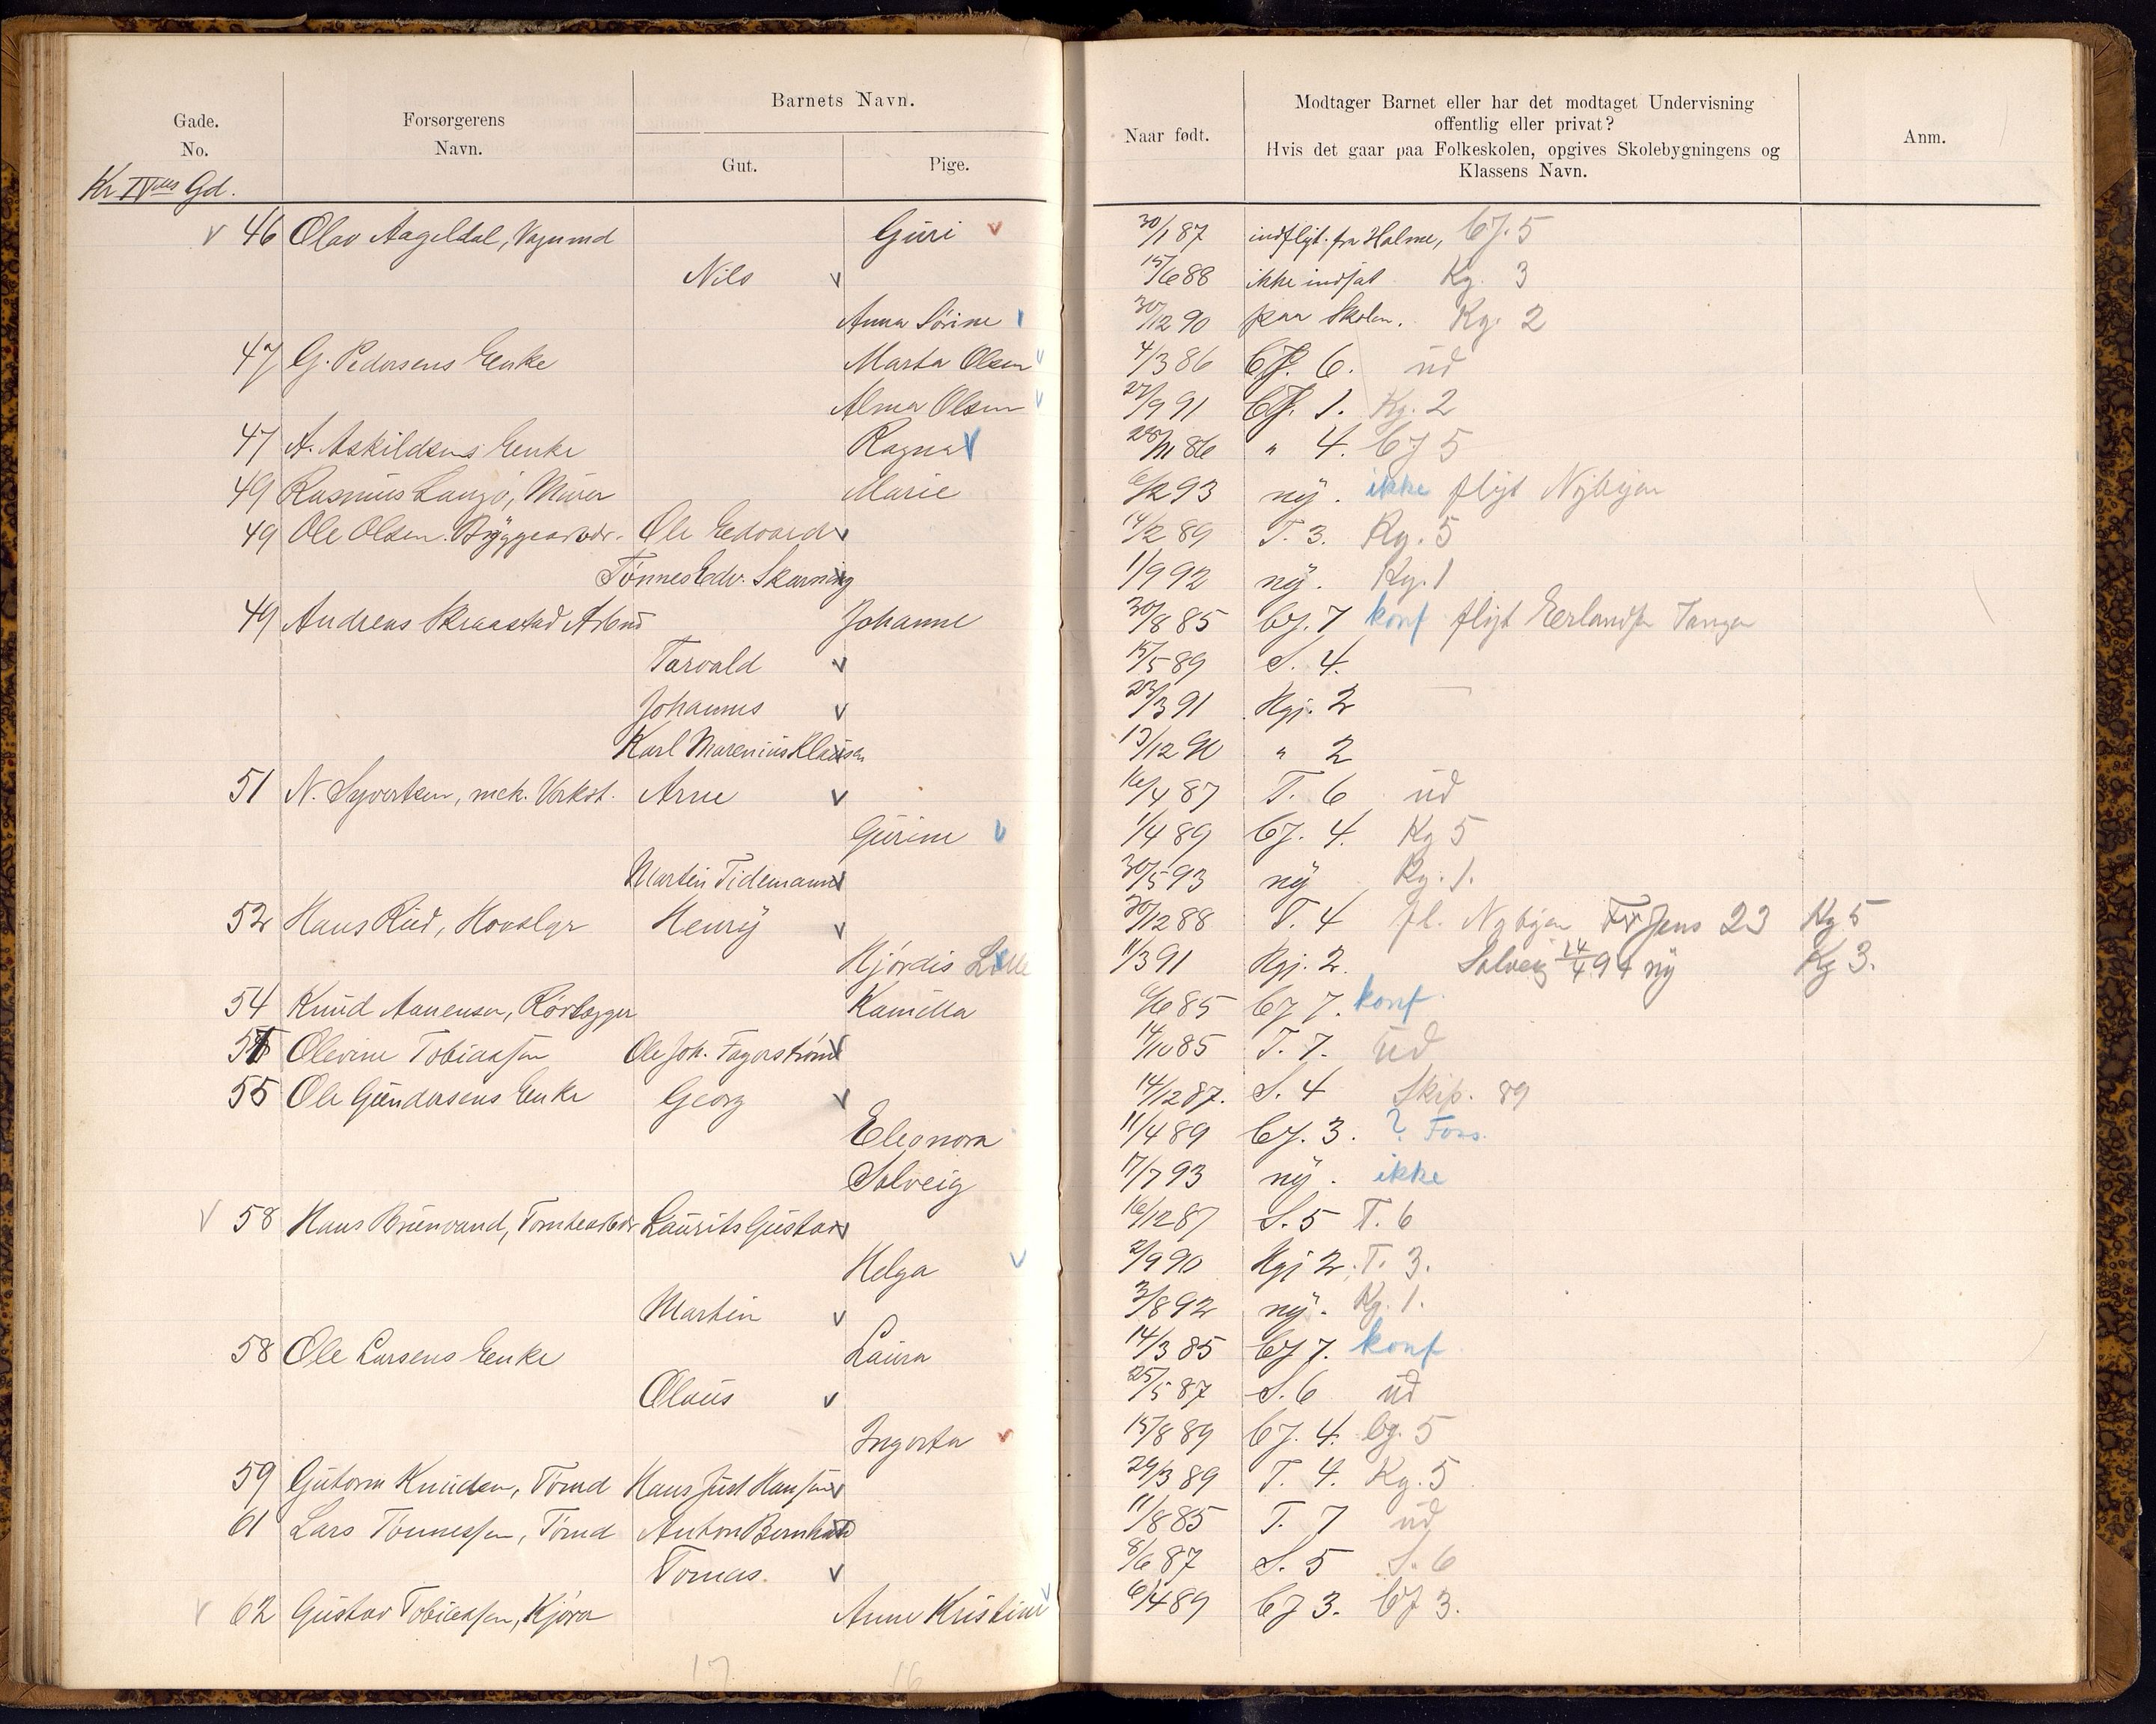 Gade. No. Forsørgerens Navn. Barnets Navn. Gut. Pige. Naar født. Modtager Barnet eller har det modtaget Undervisning offentlig eller privat? Hvis det gaar paa Folkeskolen, opgives Skolebygningens og Klassens Navn. Anm.
Kr IVdes Gd.
46 Olav Aageldal, Vognmd Guri 30/1 87 indflyt. fra Halse, CJ. 5
Nils 15/6 88 ikke indsat Kg. 3
Anna Sørine 30/12 90 paa Skolen. Kg. 2
47 G. Pedersens Enke Marta Olsen 4/3 86 CJ. 6. ud
Alma Olsen 27/9 91 CJ. 1. Kg. 2
47 A. Askildsens Enke Ragna 28/11 86 " 4. CJ 5
49 Rasmus Langø, Murer Marie 6/2 93 ny. ikke flyt Nybyen
49 Ole Olsen. Byggearbdr. Ole Edvard 14/2 89 T. 3. Kg. 5
Tønnes Edv. Skarning 1/9 92 ny. Kg. 1
49 Andreas Skraastad Arbmd Johanne 30/8 85 CJ. 7 konf flyt Erlandsen Tangen
Tarvald 15/5 89 S. 4.
Johannes 23/3 91 Kgj. 2
Karl Marenius Klausen 13/12 90 " 2
51 N. Syvertsen, mek. Verkst. Arne 16/4 87 T. 6 ud
Gurine 1/4 89 CJ. 4. Kg 5
Martin Tidemann 30/5 93 ny Kg. 1.
52 Hans Rud, Hovslgr Henry 30/12 88 T. 4 fl. Nybyen Fr Jens 23 Kg 5
Hjørdis Lille 11/3 91 Kgj. 2. Solveig 14/4 94 ny Kg 3.
54 Knud Aanensen, Rørlægger Kamilla 6/6 85 CJ 7. konf
54 Olevine Tobiassen Ole Joh. Fagerstrøm 14/10 85 T. 7. ud
55 Ole Gundersens Enke Georg 14/12 87. S. 4 Skip. 89
Eleonora 11/4 89 CJ. 3. ? Fors.
Solveig 17/7 93 ny. ikke
58 Hans Bruenvand, Tomtearbdr Laurits Gustav 16/12 87 S. 5 T. 6
Helga 2/9 90 Kgj 2. T. 3.
Martin 3/8 92 ny. Kg. 1.
58 Ole Larsens Enke Laura 14/3 85 CJ 7. konf
Olaus 25/5 87 S. 6 ud
Ingerta 15/8 89 CJ. 4. CJ. 5
59 Gutorm Knudsen, Tømd Hans Just Hansen 29/3 89 T. 4. Kg. 5
61 Lars Tønnessen, Tømd Anton Bernhard 11/8 85 T. 7 ud
Tomas. 8/6 87 S. 5 S. 6
62 Gustav Tobiassen, Kjøra Anne Kristine 6/4 89 CJ 3. CJ 3.
17 16